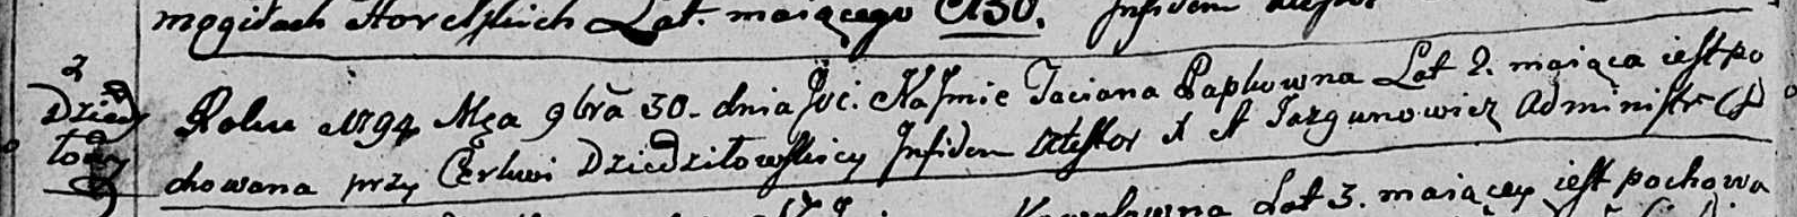 mogiłach Horelskich Lat. maiącego 130. Infidem
2
Dziedz
Roku 1794 Mca 9bra 30. dnia Taciana Papkowna Lat 2. maiąca iest po
chowana przy Cerkwi Dziedziłowskiey Infidem Attestor X A Jazgunowicz Administr
Lat 3. maiącey iest pochowa